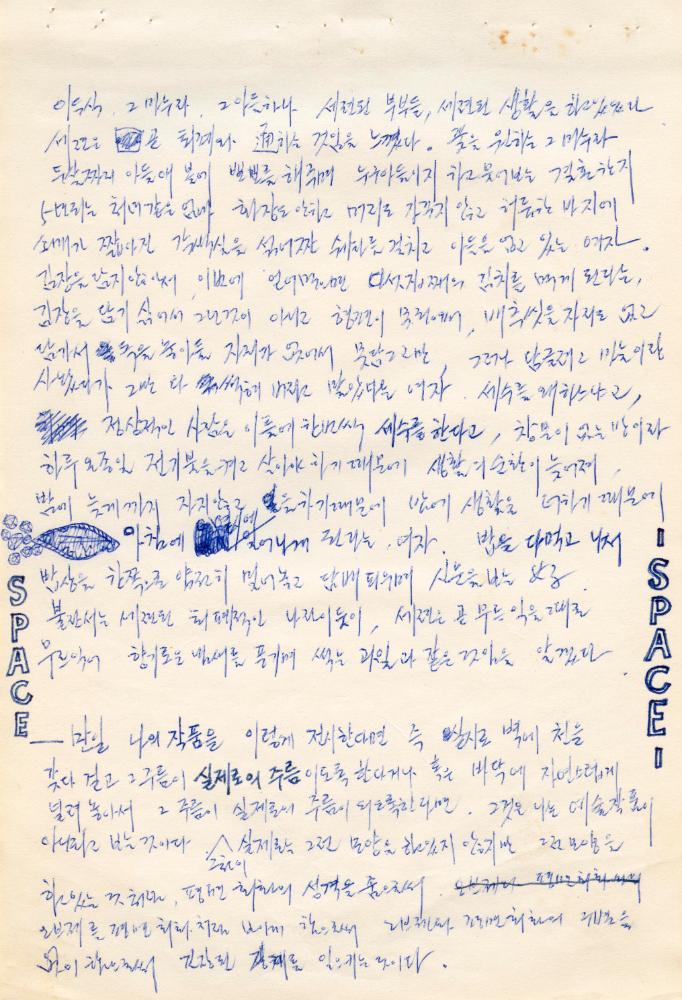 이득식, 그 마누라, 그 아들하나 세련된 부부들, 세련된 생활을 하고있었다
세련은 곧 퇴폐와 通하는 것임을 느꼈다. 꽃을 원하는 그 마누라
두살짜리 아들애 볼에 뽀뽀를 해주며 누구아들이지 하고 물어보는 결혼한지
5년되는 처녀같은 엄마. 화장도 안하고 머리도 가꾸지 않고 허름한 바지에
소매가 짧아진 갈색실을 섞어짠 쉐타를 걸치고 아들을 업고 있는 여자.
김장을 담지않아서 이번에 얻어먹으면 다섯집째의 김치를 먹게 된다는,
김장을 담기 싫어서 그런것이 아니고 형편이 못되어서, 배추씻을 자리도 없고
담가서 독을 놓아둘 자리가 없어서 못담그고만, 그러나 담글려고 마늘이랑
여자. 세수를 왜하느냐고,
정상적인 사람은 이틀에 한번씩 세수를 한다고, 창문이 없는 방이라
하루 온종일 전기불을 켜고 살아야 하기 때문에 생활의 순환이 늦어져,
밤에 늦게까지 자지않고 일을 하기때문에 밤에 생활을 더하기 때문에
아침에 늦게 일어나게 된다는 여자. 밥을 다먹고 나서
밥상을 한쪽으로 얌전히 밀어놓고 담배 피우며 신문을 보는 女子.
불란서는 세련된 퇴폐적인 나라이듯이, 세련은 곧 무르익을대로
무르익어 향기로운 냄새를 풍기며 썩는 과일과 같은 것임을 알겠다
SPACE
SPACE
— 만일 나의 작품을 이렇게 전시한다면 즉 실지로 벽에 천을
갖다 걸고 그 주름이 실제로의 주름이도록 한다거나 혹은 바닥에 자연스럽게
널려 놓아서 그 주름이 실제로의 주름이 되도록한다면, 그것은 나는 예술작품이
아니라고 보는 것이다. 실제로는 그런 모양을 하고있지 않지만 그런 모양을
그것이
하고있는 것처럼, 평면 회화의 성격을 줌으로써
오브제를 평면 회화처럼 보이게 함으로써 오브제와 평면회화의 구별을
없이 함으로써 긴장된 관계를 일으키는 것이다.